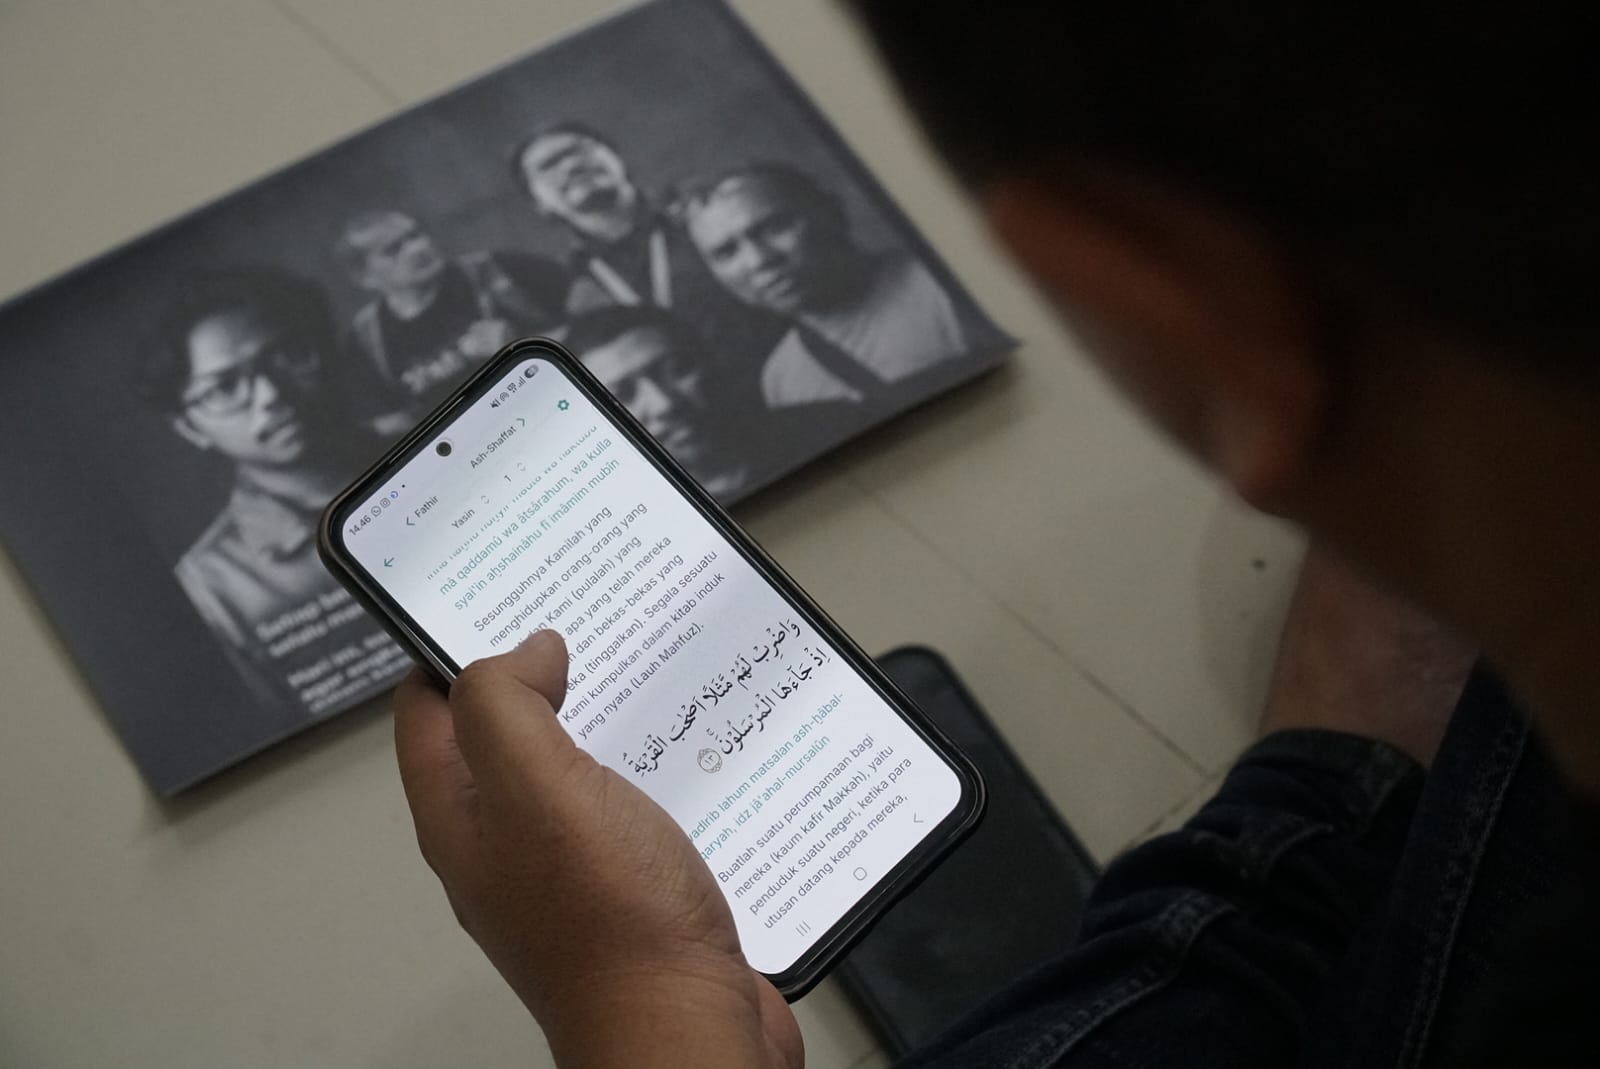 14.46
Fathir
Yasin
1
Ash-Shaffat
mâ qaddamû wa âtsârahum, wa kulla
syai'in aḥshainâhu fî imâmim mubîn
Sesungguhnya Kamilah yang
menghidupkan orang-orang yang
Kami (pulalah) yang
apa yang telah mereka
dan bekas-bekas yang
(tinggalkan). Segala sesuatu
Kami kumpulkan dalam kitab induk
yang nyata (Lauh Mahfuz).
وَاضْرِبْ لَهُمْ مَّثَلًا اَصْحٰبَ الْقَرْيَةِۘ
اِذْ جَاۤءَهَا الْمُرْسَلُوْنَۚ ١٣
lahum matsalan ash-ḫâbal-
qaryah, idz jâ'ahal-mursalûn
Buatlah suatu perumpamaan bagi
mereka (kaum kafir Makkah), yaitu
penduduk suatu negeri, ketika para
utusan datang kepada mereka,